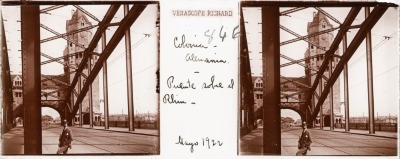 VERASCOPE RICHARD
846
Colonia -
Alemania.
-
Puente sobre el
Rhin -
Mayo 1922